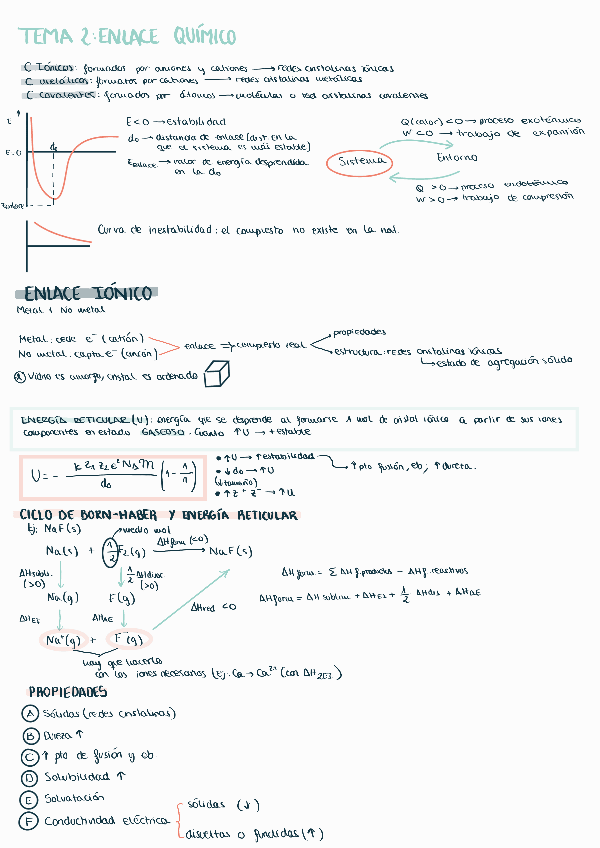 TEMA 2: ENLACE QUÍMICO
C Iónicos: formados por aniones y cationes → redes cristalinas iónicas
C metálicos: formados por cationes → redes cristalinas metálicas
C covalentes: formados por átomos → moléculas o red cristalinas covalentes
E
E=0
do
E<0 → estabilidad
do → distancia de enlace (dist en la
que el sistema es más estable)
Eenlace → valor de energía desprendida
en la do
Q (calor) <0 → proceso exotérmico
W <0 → trabajo de expansión
Sistema
Entorno
Q >0 → proceso endotérmico
W >0 → trabajo de compresión
Curva de inestabilidad: el compuesto no existe en la nat.
ENLACE IÓNICO
Metal + No metal
Metal: cede e⁻ (catión)
No metal: capta e⁻ (anión)
enlace → compuesto real
propiedades
estructura: redes cristalinas iónicas
estado de agregación sólido
Vidrio es amorfo, cristal es ordenado
ENERGÍA RETICULAR (U): energía que se desprende al formarse 1 mol de cristal iónico a partir de sus iones
componentes en estado GASEOSO. Cuanto ↑U → +estable
U = - k z₁ z₂ e² NA M / do (1 - 1/n)
• ↑U → ↑estabilidad → ↑ pto fusión, eb; ↑ dureza.
• ↓do → ↑U
(↓tamaño)
• ↑z⁺ z⁻ → ↑U
CICLO DE BORN-HABER Y ENERGÍA RETICULAR
Ej: NaF(s)
medio mol
Na(s) + 1/2 F₂(g) → NaF(s)
ΔHform (<0)
ΔHsubl. (>0)
1/2 ΔHdisoc (>0)
Na(g) F(g)
ΔHred <0
ΔHEI ΔHAE
Na⁺(g) + F⁻(g)
ΔH form = Σ ΔHf. productos - ΔHf. reactivos
ΔHform = ΔH sublim + ΔHEI + 1/2 ΔHdis + ΔHAE
hay que hacerlo
con los iones necesarios (Ej: Ca → Ca²⁺ (con ΔH2EI)
PROPIEDADES
A Sólidas (redes cristalinas)
B Dureza ↑
C ↑ pto de fusión y eb
D Solubilidad ↑
E Solvatación
F Conductividad eléctrica
sólidas (↓)
disueltas o fundidas (↑)